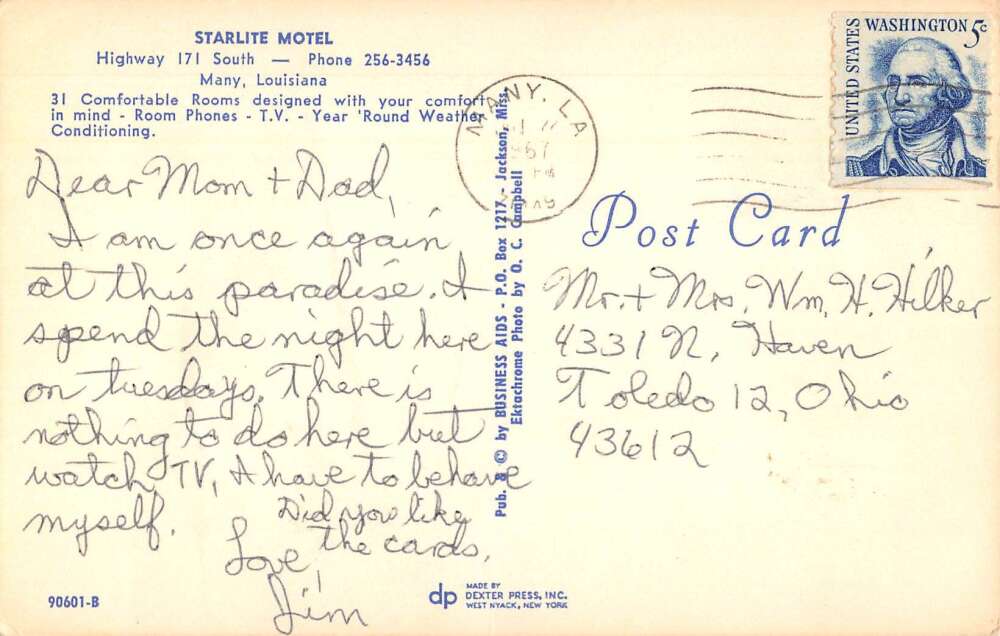 STARLITE MOTEL
Highway 171 South — Phone 256-3456
Many, Louisiana
31 Comfortable Rooms designed with your comfort
in mind - Room Phones - T.V. - Year 'Round Weather
Conditioning.
Dear Mom + Dad,
I am once again
at this paradise. I
spend the night here
on tuesdays. There is
nothing to do here but
watch TV, I have to behave
myself.
Did you like
the cards.
Love,
Jim
90601-B
Pub. & © by BUSINESS AIDS - P.O. Box 1217 - Jackson, Miss.
Ektachrome Photo by O. C. Campbell
MANY, LA
1967
PM
UNITED STATES
WASHINGTON 5c
Post Card
Mr. + Mrs. Wm. H. Hilker
4331 N. Haven
Toledo 12, Ohio
43612
dp
MADE BY
DEXTER PRESS, INC.
WEST NYACK, NEW YORK